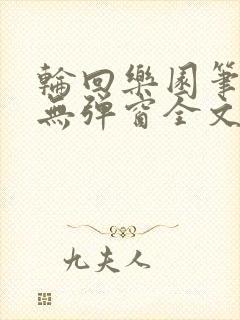 輪回樂園筆
無彈窗全文
九夫人